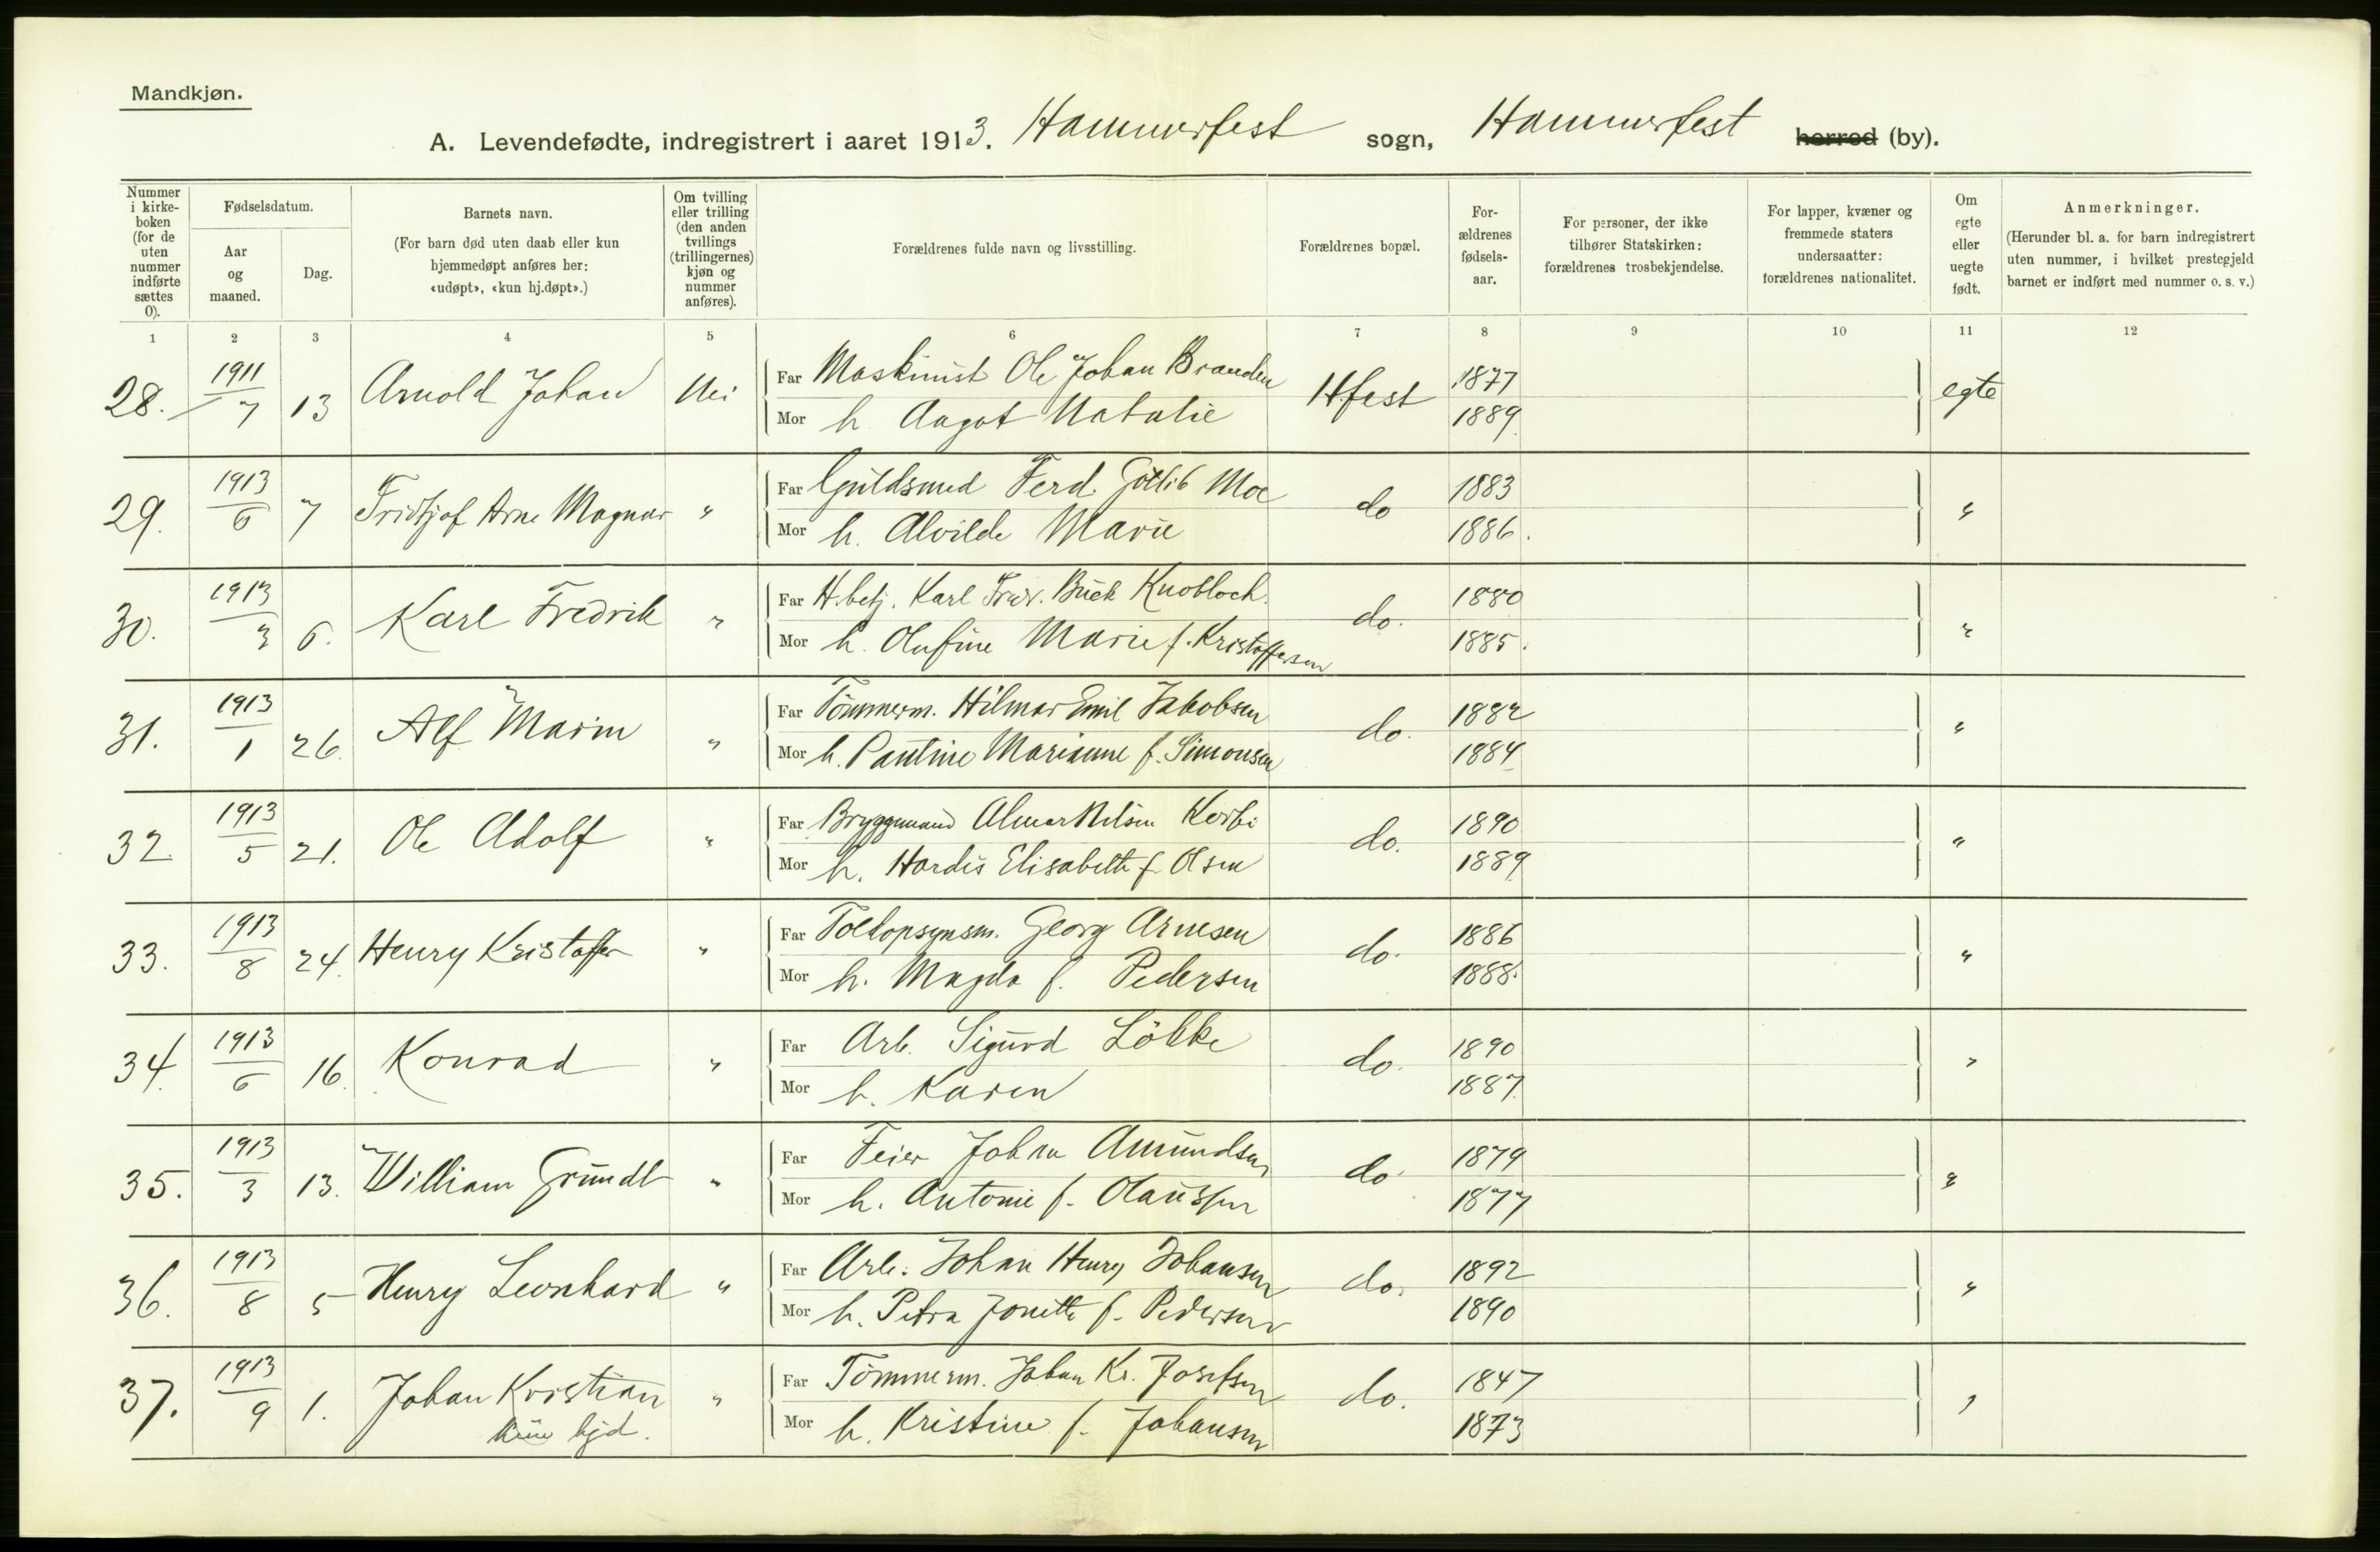 Mandkjøn.
A. Levendefødte, indregistrert i aaret 1913. Hammerfest sogn, Hammerfest herred (by).
Nummer i kirkeboken (for de uten nummer indførte sættes 0).
Fødselsdatum.
Aar og maaned.
Dag.
Barnets navn.
(For barn død uten daab eller kun hjemmedøpt anføres her: «udøpt», «kun hj.døpt».)
Om tvilling eller trilling (den anden tvillings (trillingernes) kjøn og nummer anføres).
Forældrenes fulde navn og livsstilling.
Forældrenes bopæl.
Forældrenes fødselsaar.
For personer, der ikke tilhører Statskirken: forældrenes trosbekjendelse.
For lapper, kvæner og fremmede staters undersaatter: forældrenes nationalitet.
Om egte eller uegte født.
Anmerkninger.
(Herunder bl. a. for barn indregistrert uten nummer, i hvilket prestegjeld barnet er indført med nummer o. s. v.)
1 2 3 4 5 6 7 8 9 10 11 12
28. 1911/7 13 Arnold Johan Nei Far Maskinist Ole Johan Branden Hfest 1877 egte
Mor h. Aagot Natalie 1889.
29. 1913/6 7 Fridtjof Arne Magnar " Far Guldsmed Ferd. Gotlib Moe do 1883 "
Mor h. Alvilde Marie 1886.
30. 1913/3 6. Karl Fredrik " Far H.betj. Karl Fredr. Buck Knobloch. do. 1880 "
Mor h. Olufine Marie f. Kristoffersen 1885.
31. 1913/1 26. Alf Marin " Far Tømmerm. Hilmar Emil Jakobsen do. 1882 "
Mor h. Pauline Marianne f. Simonsen 1884
32. 1913/5 21. Ole Adolf " Far Bryggemand Almar Nilsen Korbi do. 1890 "
Mor h. Hardis Elisabeth f. Olsen 1889
33. 1913/8 24. Henry Kristoffer " Far Toldopsynsm. Georg Arnesen do. 1886 "
Mor h. Magda f. Pedersen 1888.
34. 1913/6 16. Konrad " Far Arb. Sigurd Løkke do. 1890 "
Mor h. Karen 1887.
35. 1913/3 13. William Grundt " Far Feier Johan Amundsen do 1879 "
Mor h. Antonie f. Olaussen 1877
36. 1913/8 5 Henry Leonhard " Far Arb. Johan Henry Johansen do. 1892 "
Mor h. Petra Jonette f. Pedersen 1890
37. 1913/9 1. Johan Kristian " Far Tømmerm. Johan Kr. Josefsen do. 1847 "
kun hjd. Mor h. Kristine f. Johansen 1873